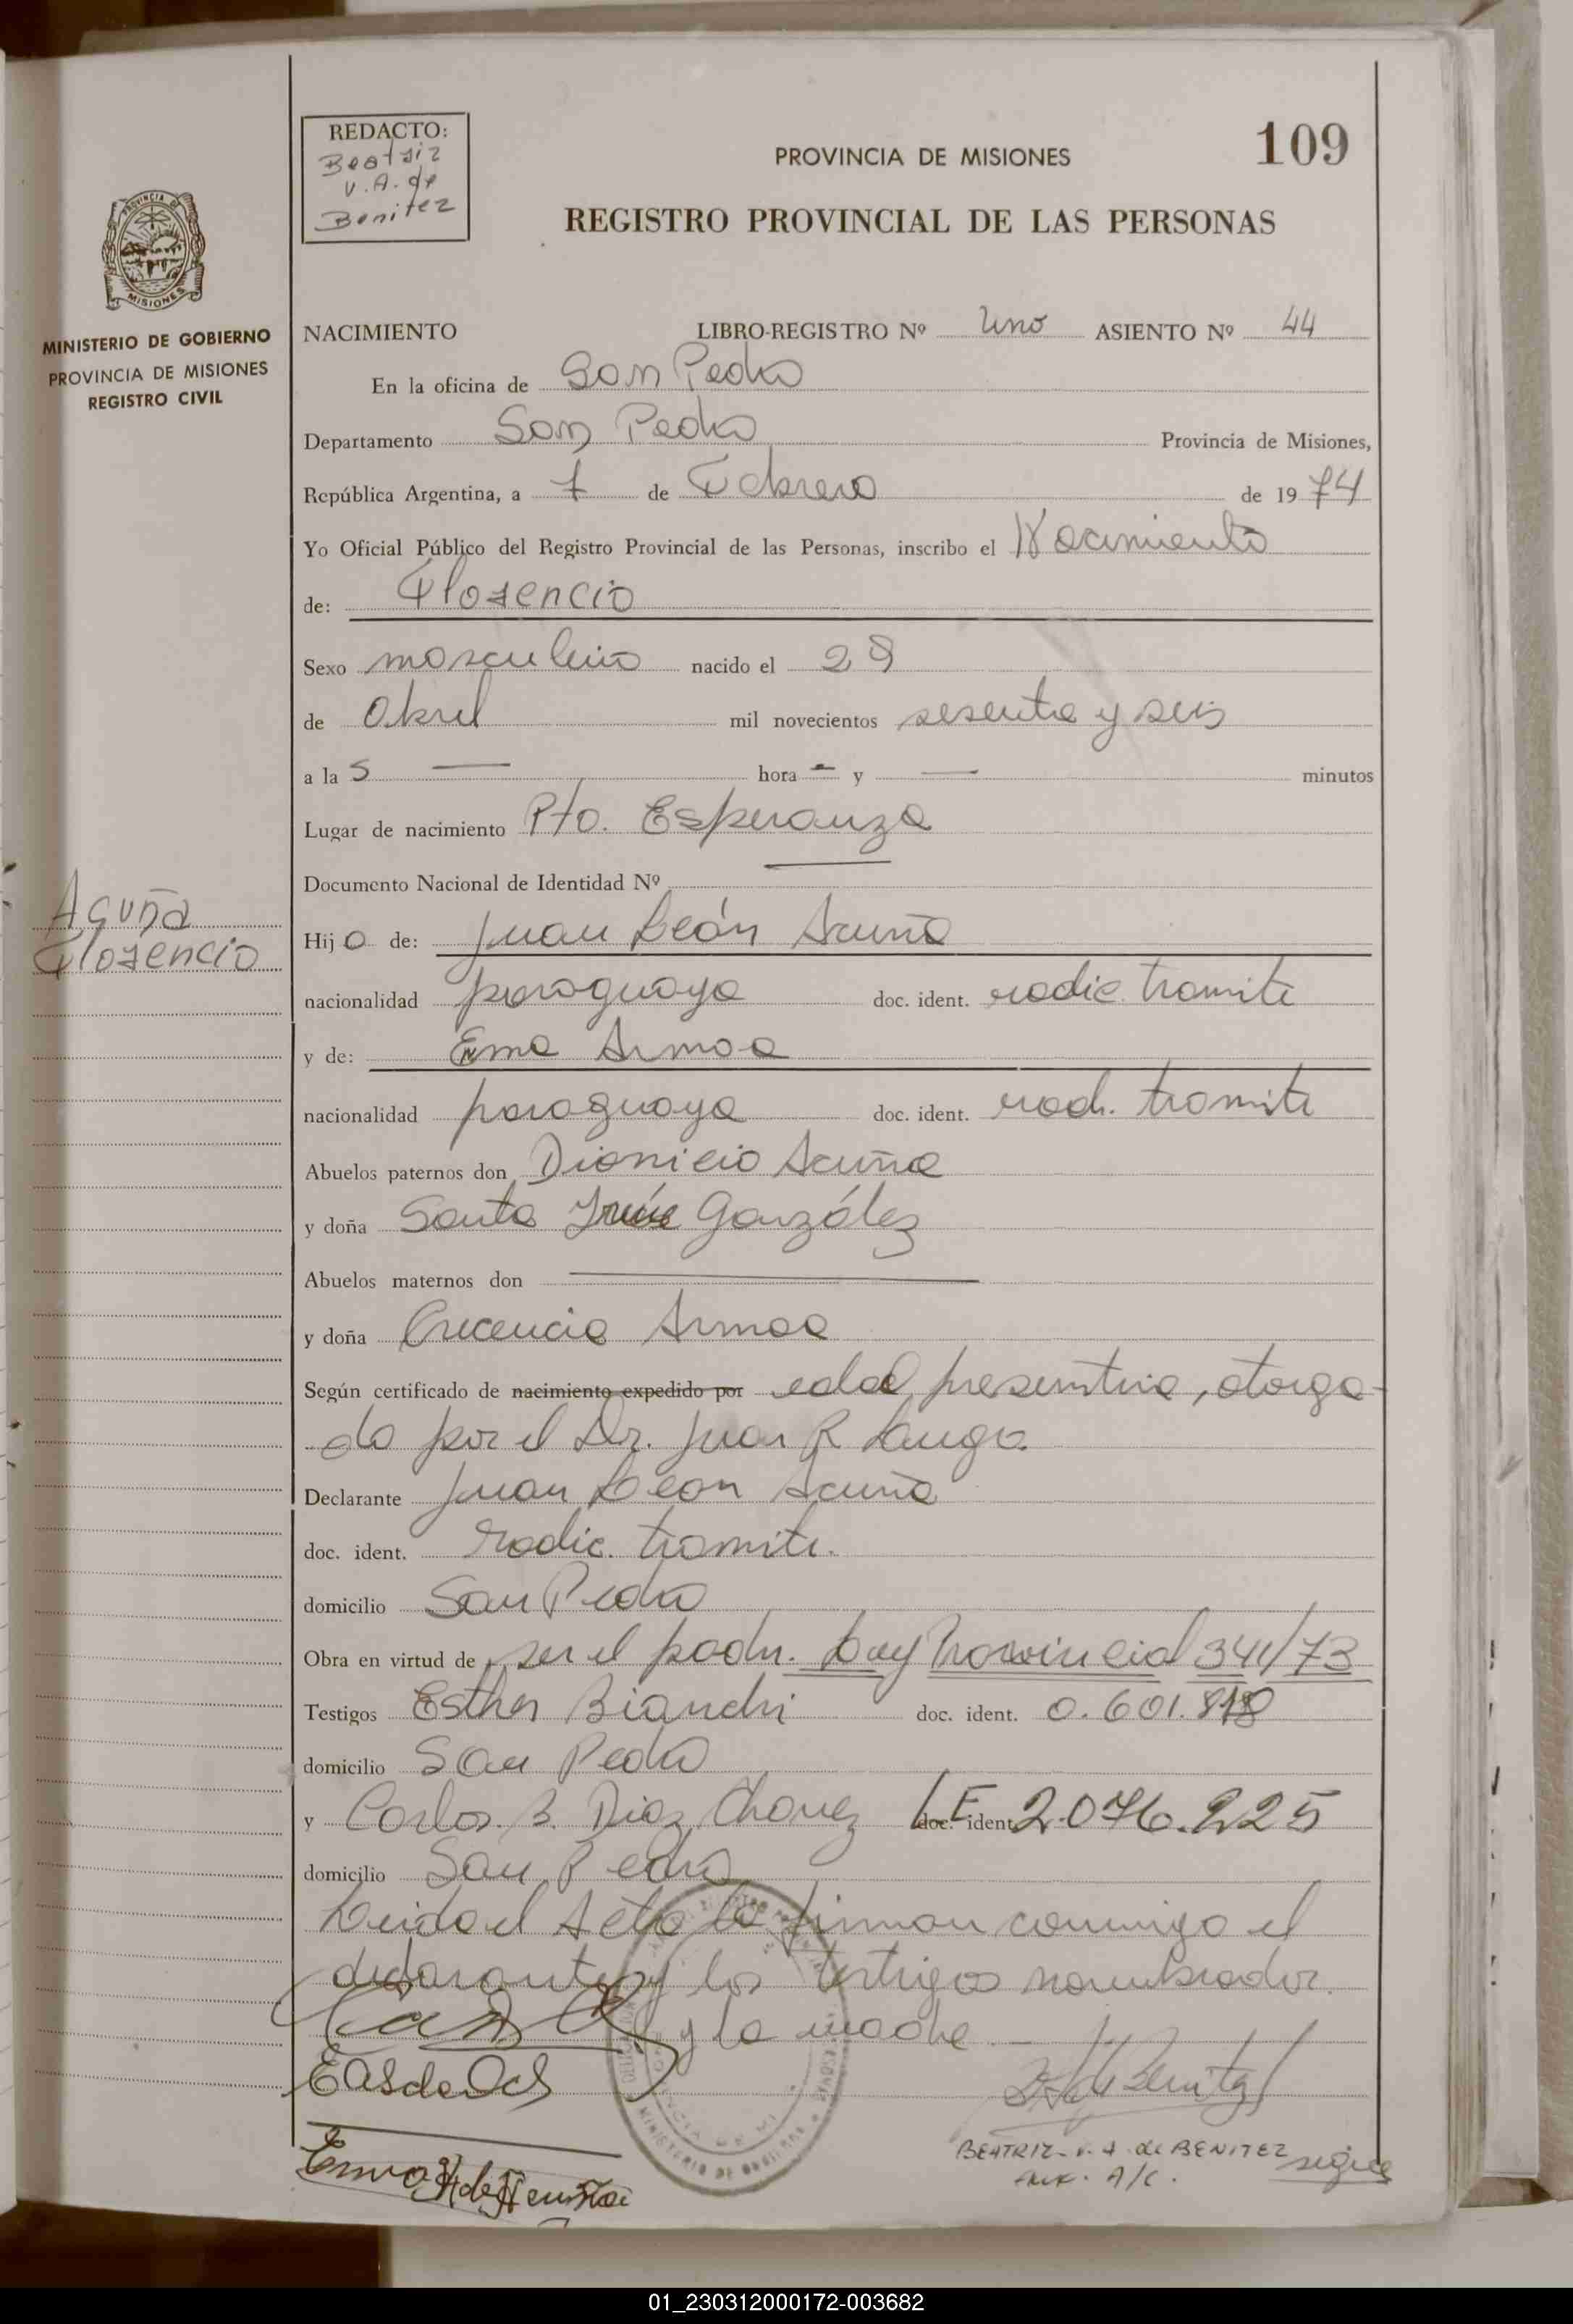 REDACTO:
Beatriz
V. A. de
Benitez
PROVINCIA DE MISIONES
109
REGISTRO PROVINCIAL DE LAS PERSONAS
PROVINCIA DE
MISIONES
MINISTERIO DE GOBIERNO
PROVINCIA DE MISIONES
REGISTRO CIVIL
NACIMIENTO LIBRO-REGISTRO Nº Uno ASIENTO Nº 44
En la oficina de San Pedro
Departamento San Pedro Provincia de Misiones,
República Argentina, a 7 de Febrero de 1974
Yo Oficial Público del Registro Provincial de las Personas, inscribo el Nacimiento
de: Florencio
Sexo masculino nacido el 28
de Abril mil novecientos sesenta y seis
a la s — hora - y — minutos
Lugar de nacimiento Pto. Esperanza
Documento Nacional de Identidad Nº —
Acuña
Florencio
Hijo de: Juan León Acuña
nacionalidad paraguaya doc. ident. radic. tramite
y de: Ema Armoa
nacionalidad paraguaya doc. ident. radi. tramite
Abuelos paternos don Dionicio Acuña
y doña Santa González
Abuelos maternos don —
y doña Crecencia Armoa
Según certificado de nacimiento expedido por edad presuntiva, otorga-
do por el Dr. Juan R.
Declarante Juan León Acuña
doc. ident. radic. tramite.
domicilio San Pedro
Obra en virtud de ser el padre. Ley Provincial 341/73
Testigos Esther Bianchi doc. ident. 0.601.
domicilio San Pedro
y Carlos B. Diaz Chavez L.E. doc. ident. 2.076.225
domicilio San Pedro
Leida el Acta la firman conmigo el
declarante y los testigos nombrados.
y la madre —
BEATRIZ V. A. de BENITEZ
Aux. A/C.
sigue
MINISTERIO DE GOBIERNO
01_230312000172-003682